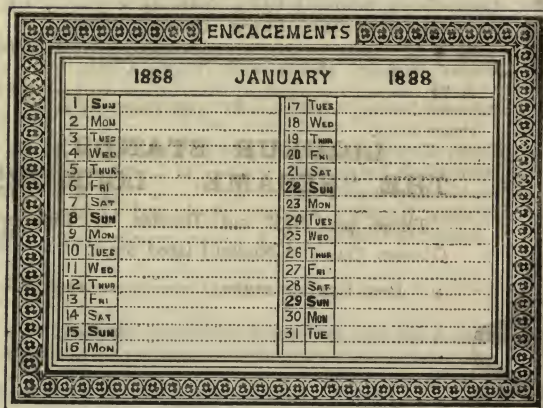 ENGAGEMENTS
1888 JANUARY 1888
1 SUN
2 MON
3 TUES
4 WED
5 THUR
6 FRI
7 SAT
8 SUN
9 MON
10 TUES
11 WED
12 THUR
13 FRI
14 SAT
15 SUN
16 MON
17 TUES
18 WED
19 THUR
20 FRI
21 SAT
22 SUN
23 MON
24 TUES
25 WED
26 THUR
27 FRI
28 SAT
29 SUN
30 MON
31 TUE